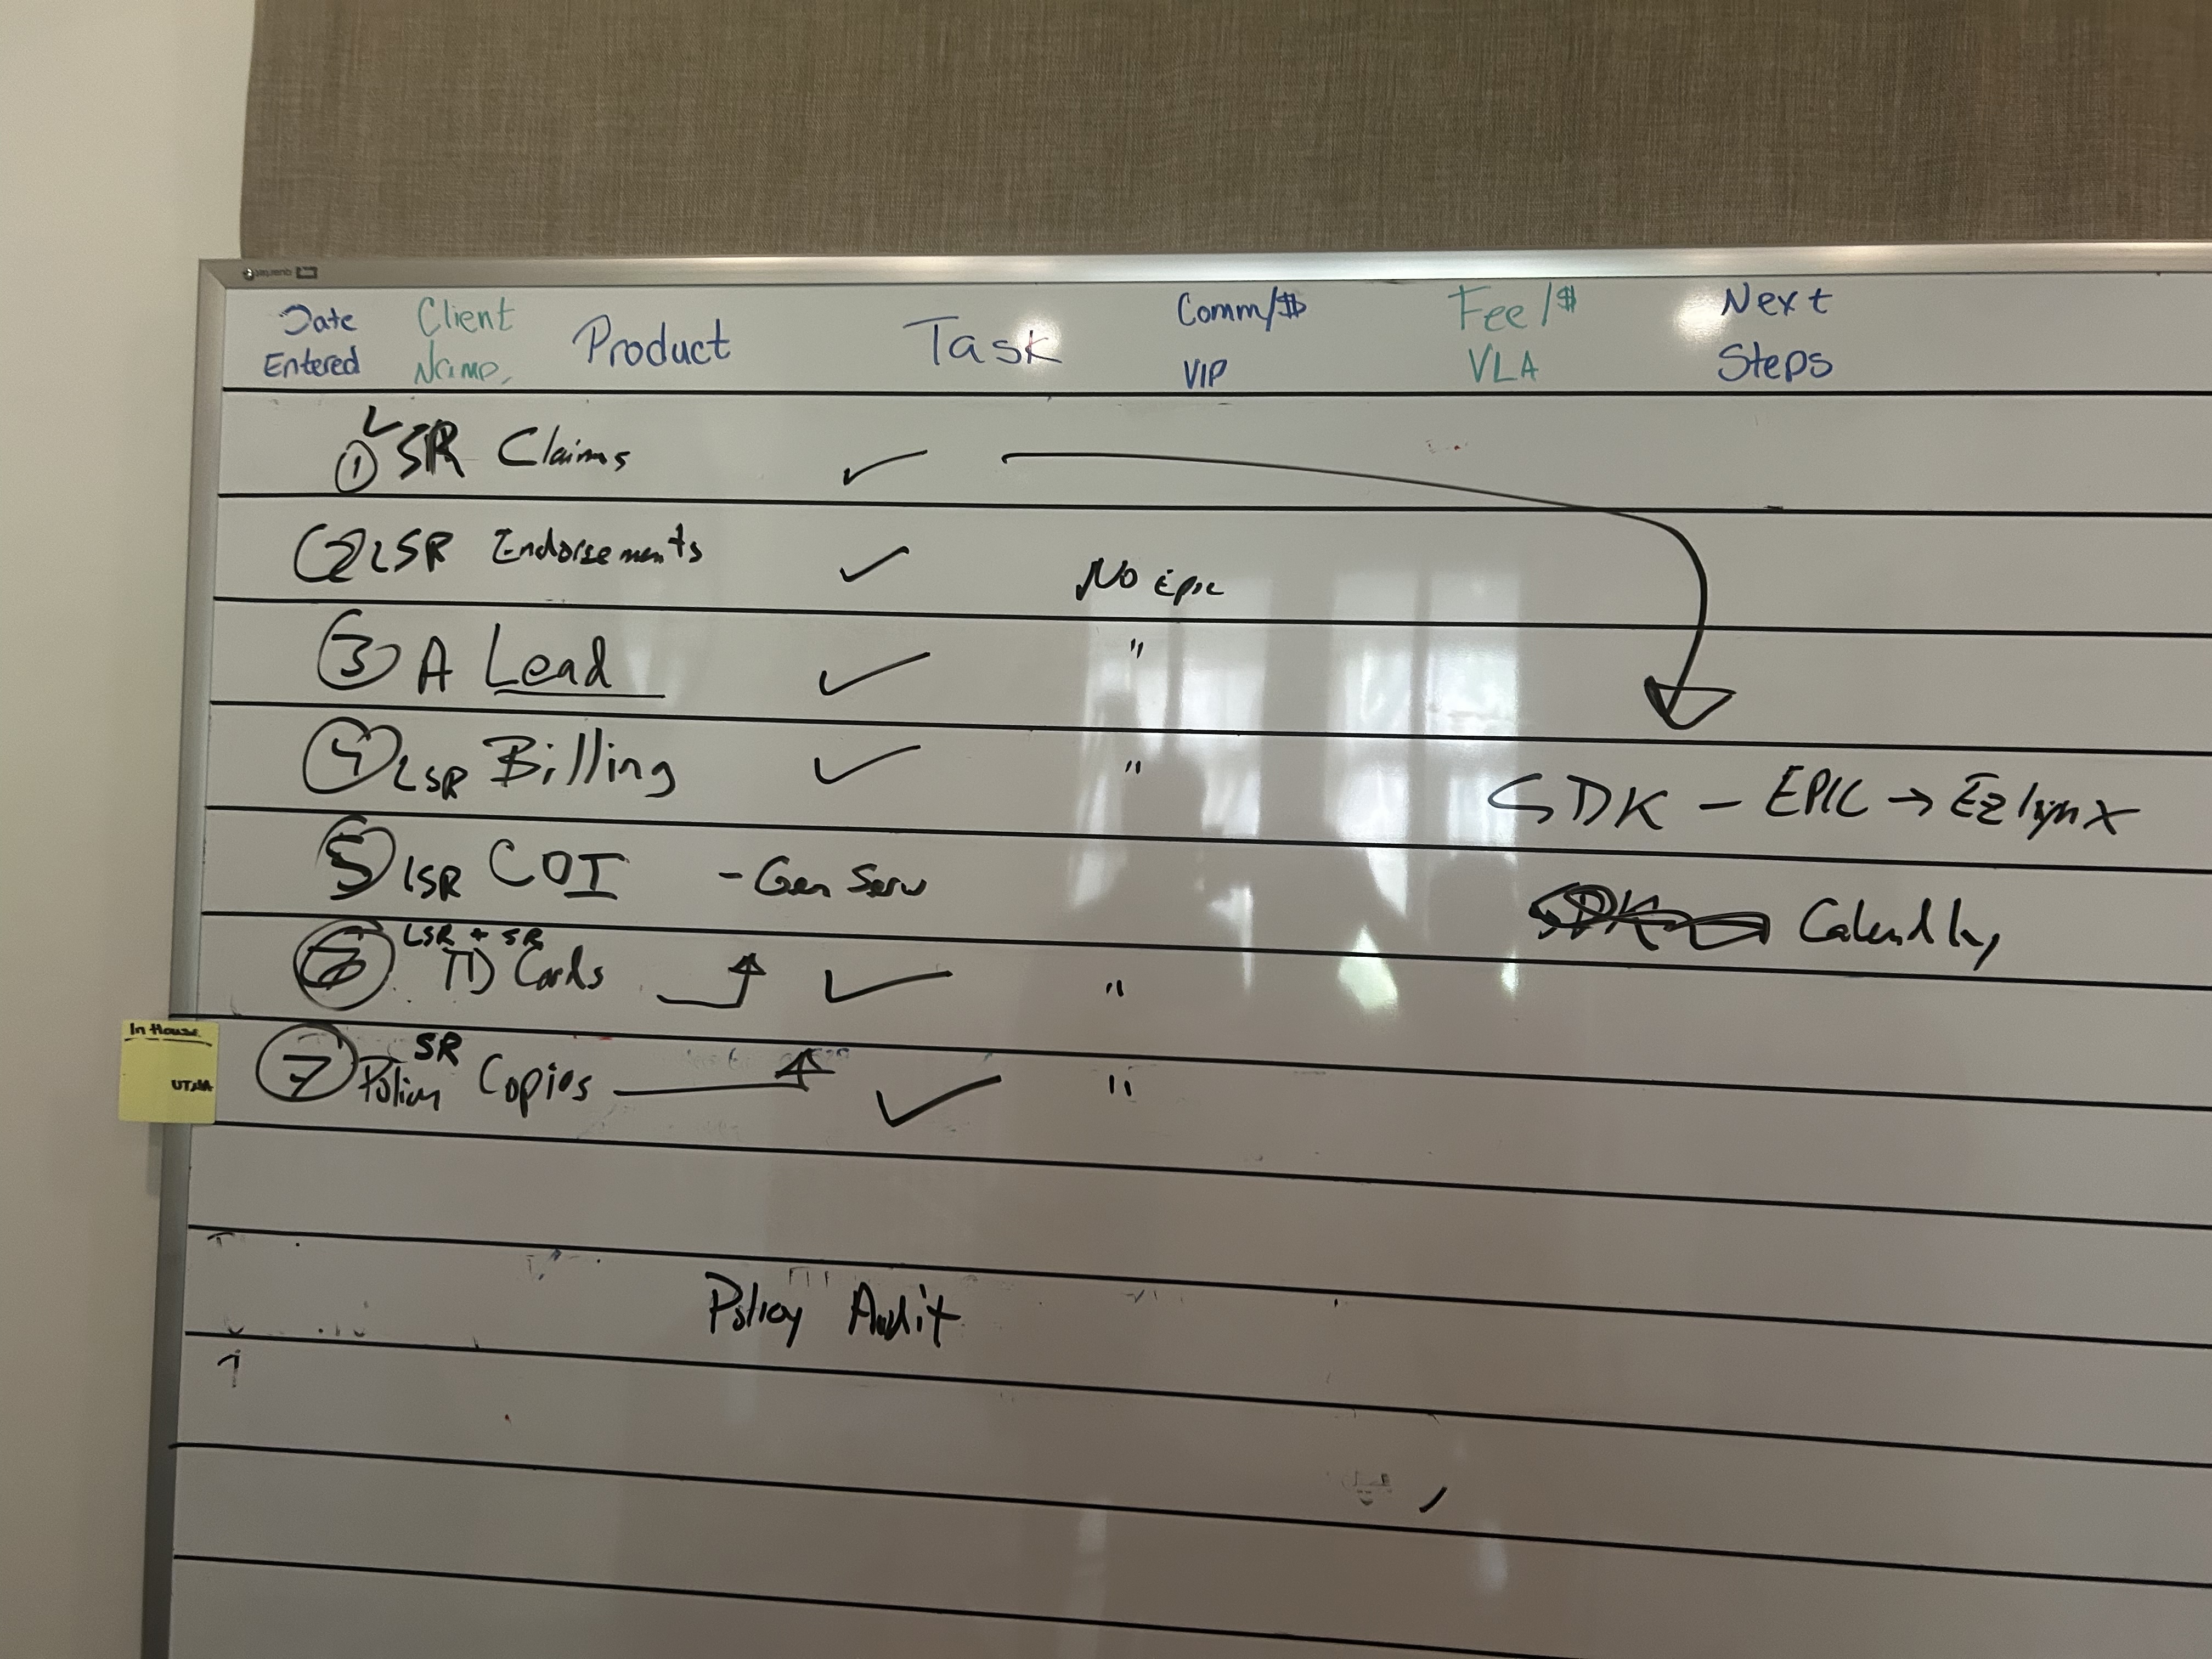 Date Entered Client Name Product Task Comm/$ VIP Fee/$ VLA Next Steps
① LSR Claims ✓
② LSR Endorsements ✓ No Epic
③ A Lead ✓ "
④ LSR Billing ✓ " SDK - EPIC → Ezlynx
⑤ LSR COI - Gen Serv Calendly
⑥ LSR + SR ID Cards ✓ "
In House
⑦ SR Policy Copies ✓ "
Policy Audit